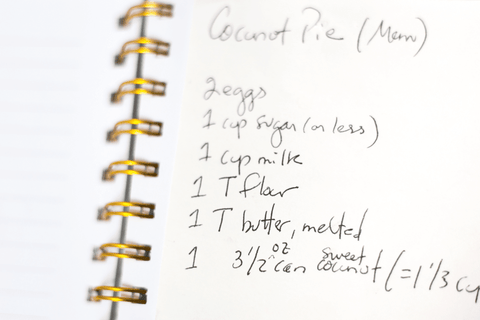 Coconut Pie (Mom)
2 eggs
1 cup sugar (or less)
1 cup milk
1 T flour
1 T butter, melted
1 3 1/2 oz can sweet coconut (= 1 1/3 cu